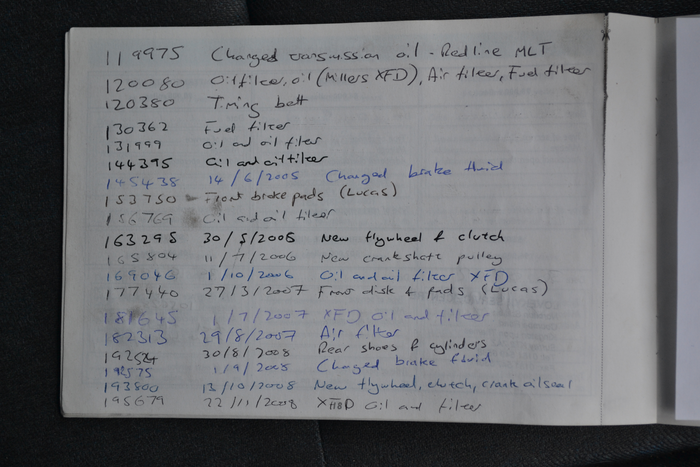 119975 Changed transmission oil - Redline MLT
120080 Oil filter, oil (Millers XFD), Air filter, Fuel filter
120380 Timing belt
130362 Fuel filter
131999 Oil and oil filter
144395 Oil and oil filter
145438 14/6/2005 Changed brake fluid
153750 Front brake pads (Lucas)
156769 Oil and oil filter
163295 30/5/2006 New flywheel & clutch
165804 11/7/2006 New crankshaft pulley
169046 1/10/2006 Oil and oil filter XFD
177440 27/3/2007 Front disk & pads (Lucas)
181645 1/7/2007 XFD oil and filter
182313 29/8/2007 Air filter
192584 30/8/2008 Rear shoes & cylinders
192575 1/9/2008 Chaged brake fluid
193800 13/10/2008 New flywheel, clutch, crank oil seal
195679 22/11/2008 Oil and filter